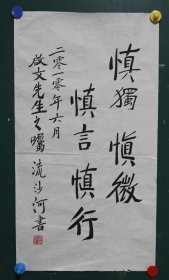 慎獨慎微
慎言慎行
二零一零年六月
啟文先生之囑 流沙河書